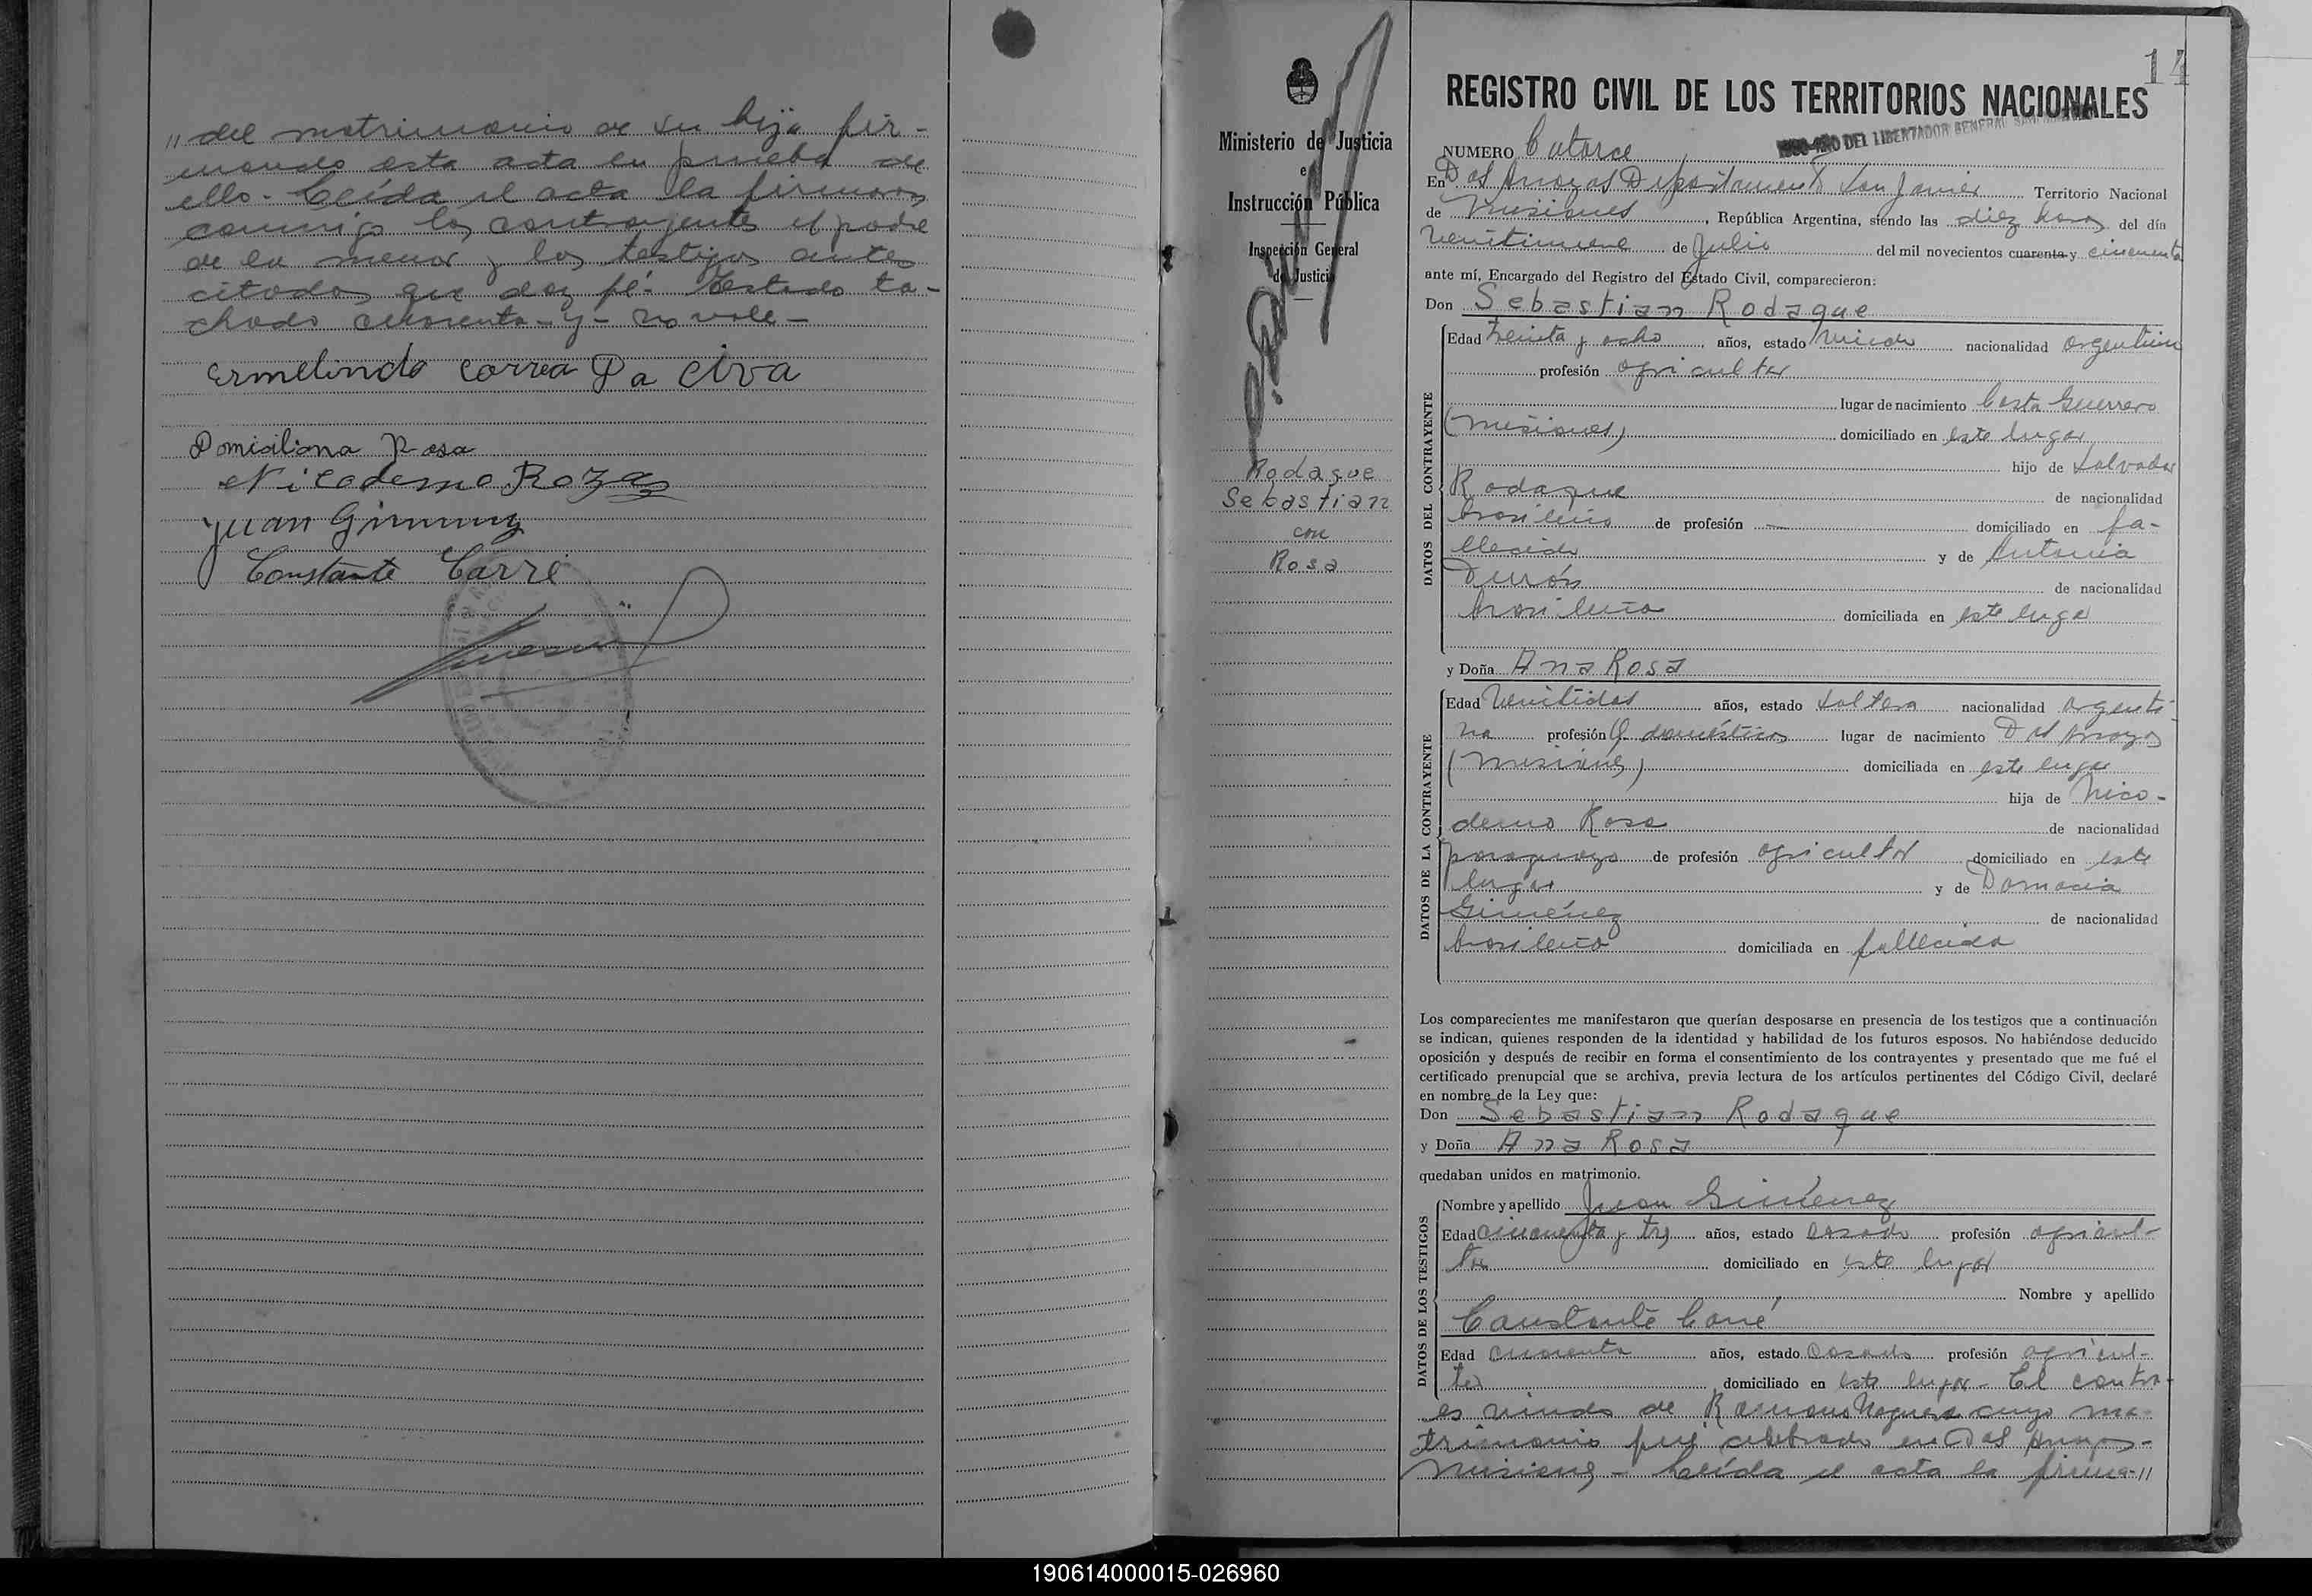 " del matrimonio de su hija fir-
mando esta acta en prueba de
ello - Leída el acta la firmaron
conmigo los contrayentes el padre
de la menor y los testigos antes
citados que doy fé - Testado ta-
chado cuarenta - y - no vale -
Ermelindo Correa Da Civa
Domiciliana Rosa
Nicodemo Rozas
Juan Gimenez
Constante Carré
14
REGISTRO CIVIL DE LOS TERRITORIOS NACIONALES
AÑO DEL LIBERTADOR GENERAL SAN MARTIN
Ministerio de Justicia
e
Instrucción Pública
Inspección General
de Justicia
Rodaque
Sebastian
con
Rosa
NUMERO Catorce
En Dos Arroyos Departamento San Javier Territorio Nacional
de Misiones, República Argentina, siendo las diez horas del día
veintinueve de Julio del mil novecientos cuarenta y cincuenta
ante mí, Encargado del Registro del Estado Civil, comparecieron:
Don Sebastian Rodaque
DATOS DEL CONTRAYENTE
Edad treinta y ocho años, estado viudo nacionalidad argentina
profesión agricultor
lugar de nacimiento Costa Guerrero
(Misiones) domiciliado en este lugar
hijo de Salvador
Rodaque de nacionalidad
brasileño de profesión — domiciliado en fa-
llecido y de Antonia
Durón de nacionalidad
brasileña domiciliada en este lugar
y Doña Ana Rosa
DATOS DE LA CONTRAYENTE
Edad veintidos años, estado soltera nacionalidad argenti-
na profesión Q. domésticos lugar de nacimiento Dos Arroyos
(Misiones) domiciliada en este lugar
hija de Nico-
demo Rosa de nacionalidad
paraguayo de profesión agricultor domiciliado en este
lugar y de Damacia
Giménez de nacionalidad
brasileña domiciliada en fallecida
Los comparecientes me manifestaron que querían desposarse en presencia de los testigos que a continuación
se indican, quienes responden de la identidad y habilidad de los futuros esposos. No habiéndose deducido
oposición y después de recibir en forma el consentimiento de los contrayentes y presentado que me fué el
certificado prenupcial que se archiva, previa lectura de los artículos pertinentes del Código Civil, declaré
en nombre de la Ley que:
Don Sebastian Rodaque
y Doña Ana Rosa
quedaban unidos en matrimonio.
DATOS DE LOS TESTIGOS
Nombre y apellido Juan Giménez
Edad cincuenta y tres años, estado casado profesión agricul-
tor domiciliado en este lugar
Nombre y apellido
Constante Carré
Edad cuarenta años, estado casado profesión agricul-
tor domiciliado en este lugar - El contra-
es viudo de Ramona Noguera cuyo ma-
trimonio fué celebrado en Dos Arroyos -
Misiones - Leída el acta la firma- "
190614000015-026960